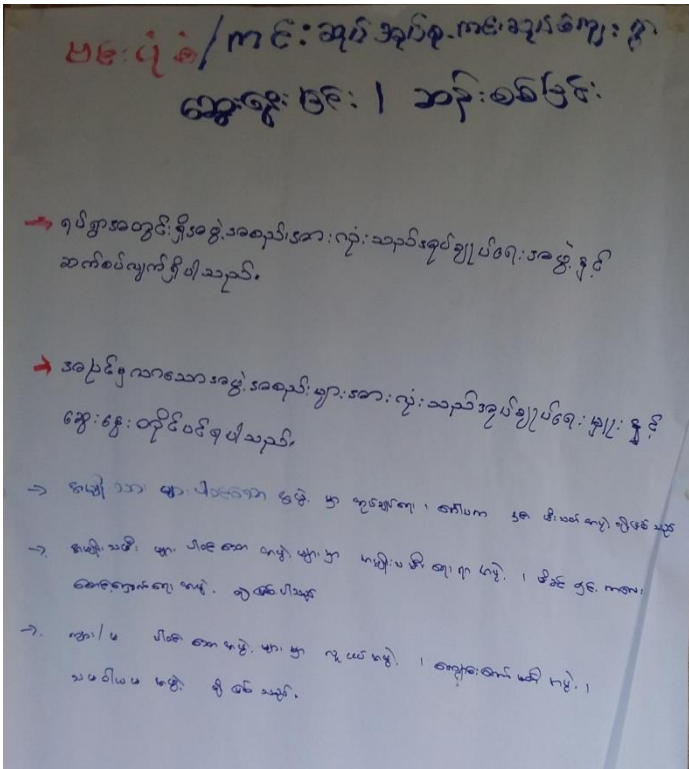 မေးပုံစံ/ကင်းဆုပ်အုပ်စု၊ကင်းဆုပ်ကျေးရွာ
ဆွေးနွေးခြင်း / ဆန်းစစ်ခြင်း
→ ရပ်ရွာအတွင်းရှိအဖွဲ့အစည်းအားလုံးသည်အုပ်ချုပ်ရေးအဖွဲ့နှင့်
ဆက်စပ်လျက်ရှိပါသည်။
→ အပြင်မှလာသောအဖွဲ့အစည်းများအားလုံးသည်အုပ်ချုပ်ရေးမှူးနှင့်
ဆွေးနွေးတိုင်ပင်ရပါသည်။
→ အမျိုးသားများပါဝင်သောအဖွဲ့မှာ အုပ်ချုပ်ရေး၊ မီးသတ်အဖွဲ့တို့ဖြစ်သည်
→ အမျိုးသမီးများ ပါဝင်သောအဖွဲ့များမှာ အမျိုးသမီးရေးရာအဖွဲ့၊ မိခင်နှင့်ကလေး
စောင့်ရှောက်ရေးအဖွဲ့ တို့ဖြစ်ပါသည်
→ ကျား/မ ပါဝင်သောအဖွဲ့များမှာ လူငယ်အဖွဲ့၊ အဖွဲ့၊
သမဝါယမအဖွဲ့ တို့ဖြစ်သည်။